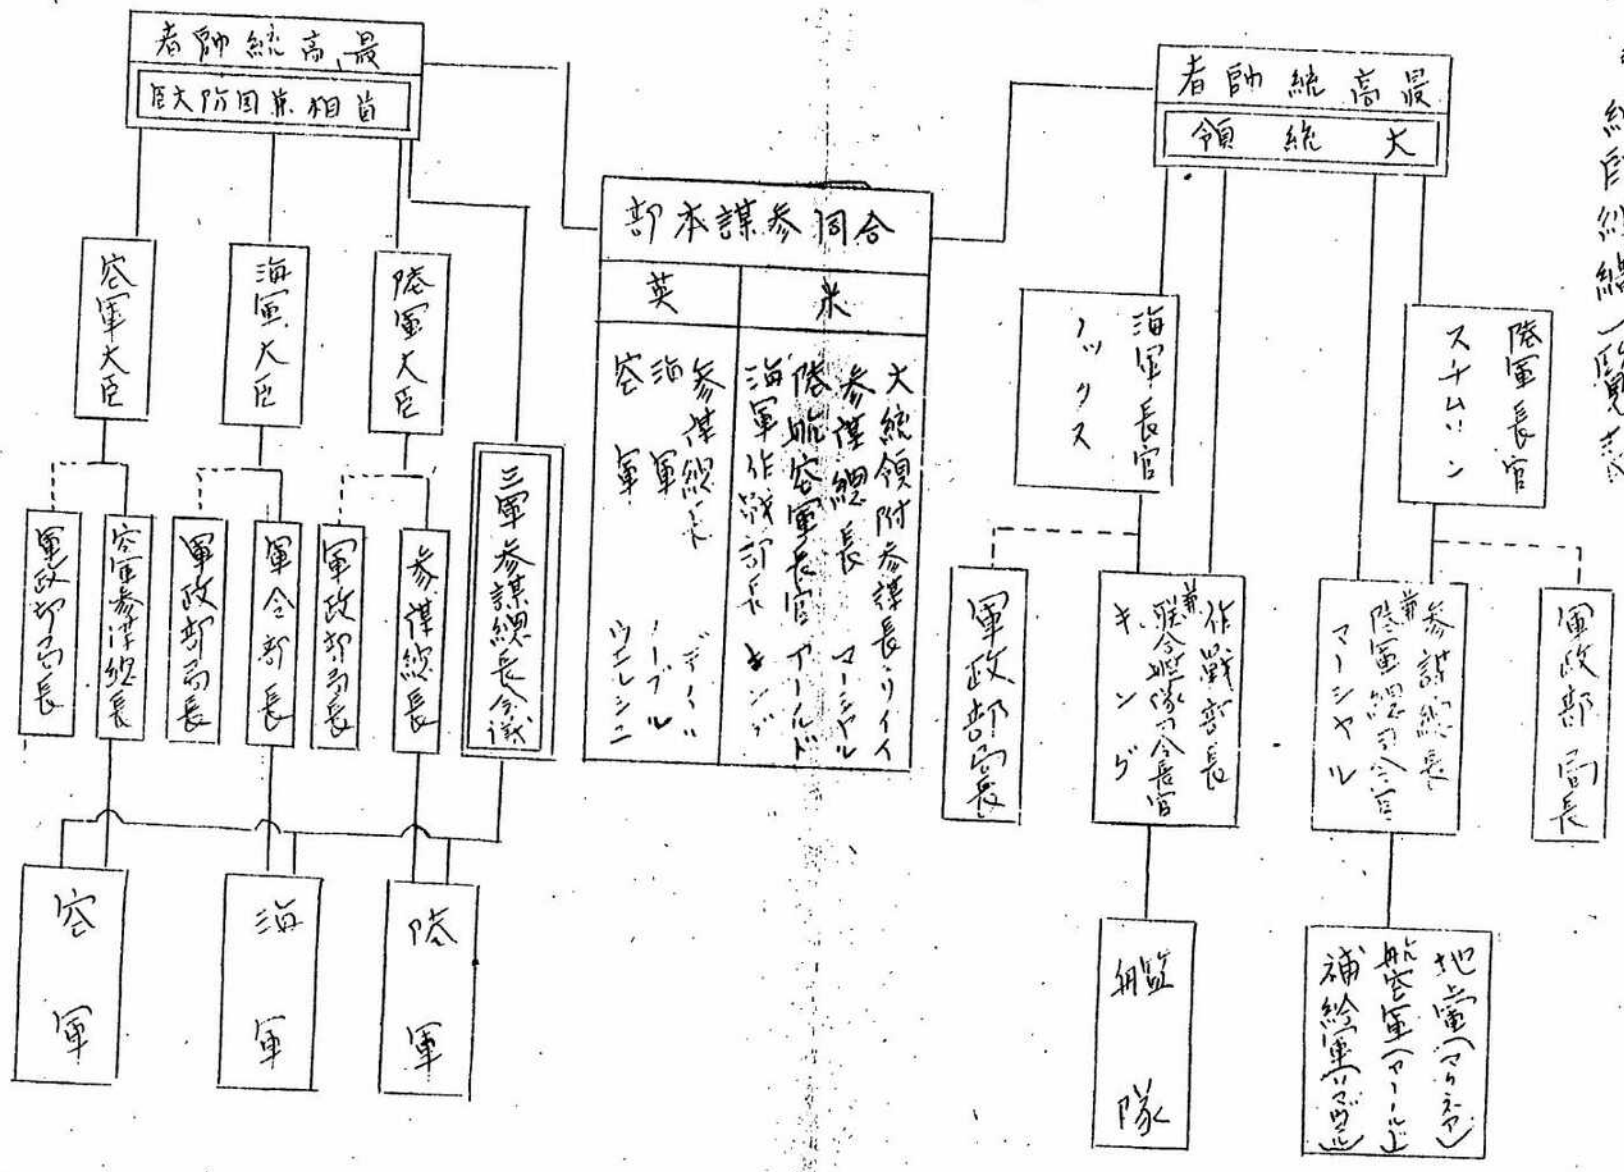 最高統帥者
大統領
陸軍長官
スチムソン
海軍長官
ノックス
軍政部局長
参謀総長
兼
陸軍総司令官
マーシャル
作戦部長
兼
聯合艦隊司令長官
キング
軍政部局長
地上軍(マクネア)
航空軍(アーノルド)
補給軍
艦隊
合同参謀本部
米
大統領附参謀長 リイイ
参謀総長 マーシャル
陸航空軍長官 アーノルド
海軍作戦部長 キング
英
参謀総長 デイール
海軍 ノーブル
空軍
最高統帥者
首相兼国防大臣
陸軍大臣
海軍大臣
空軍大臣
三軍参謀総長会議
参謀総長
軍政部局長
軍令部長
軍政部局長
空軍参謀総長
軍政部局長
陸軍
海軍
空軍